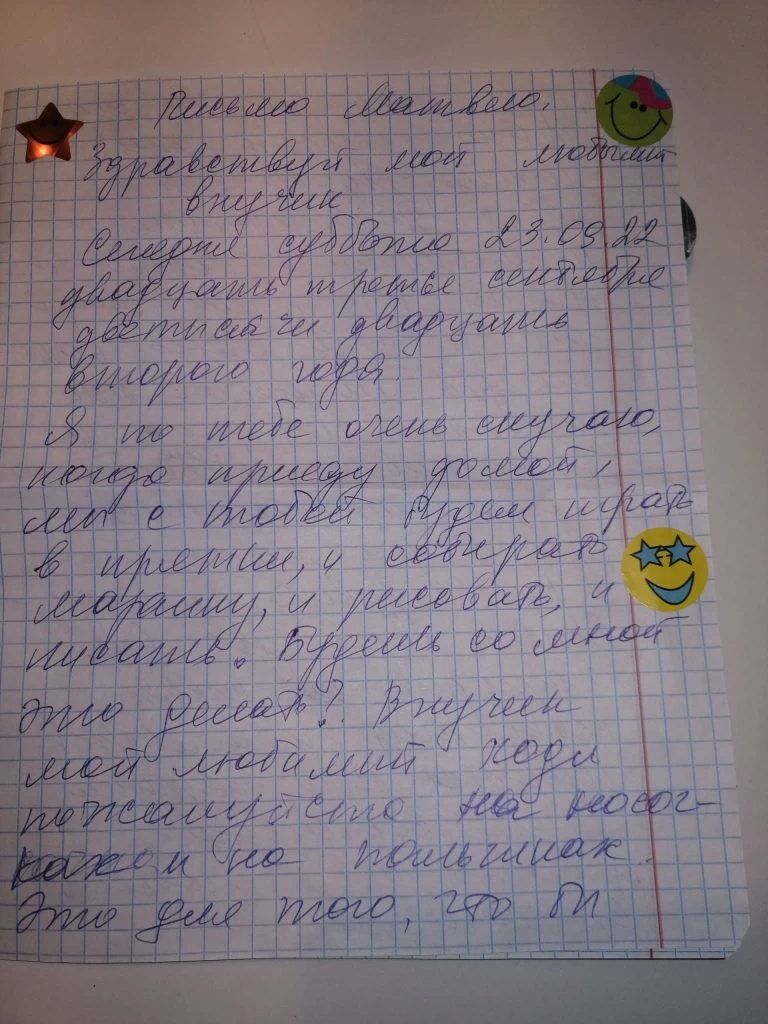 Письмо Матвею.
Здравствуй мой любимий
внучик
Сегодня суббота 23.09.22
двадцать третье сентября
дветысячи двадцать
второго года.
Я по тебе очень скучаю,
когда приеду домой,
мы с тобой будем играть
в прятки, и собирать
марашку, и рисовать, и
писать. Будешь со мной
это делать? Внучек
мой любимий ходи
пожалуйста на носоч-
ках и на пальчиках.
Это для того, что бы